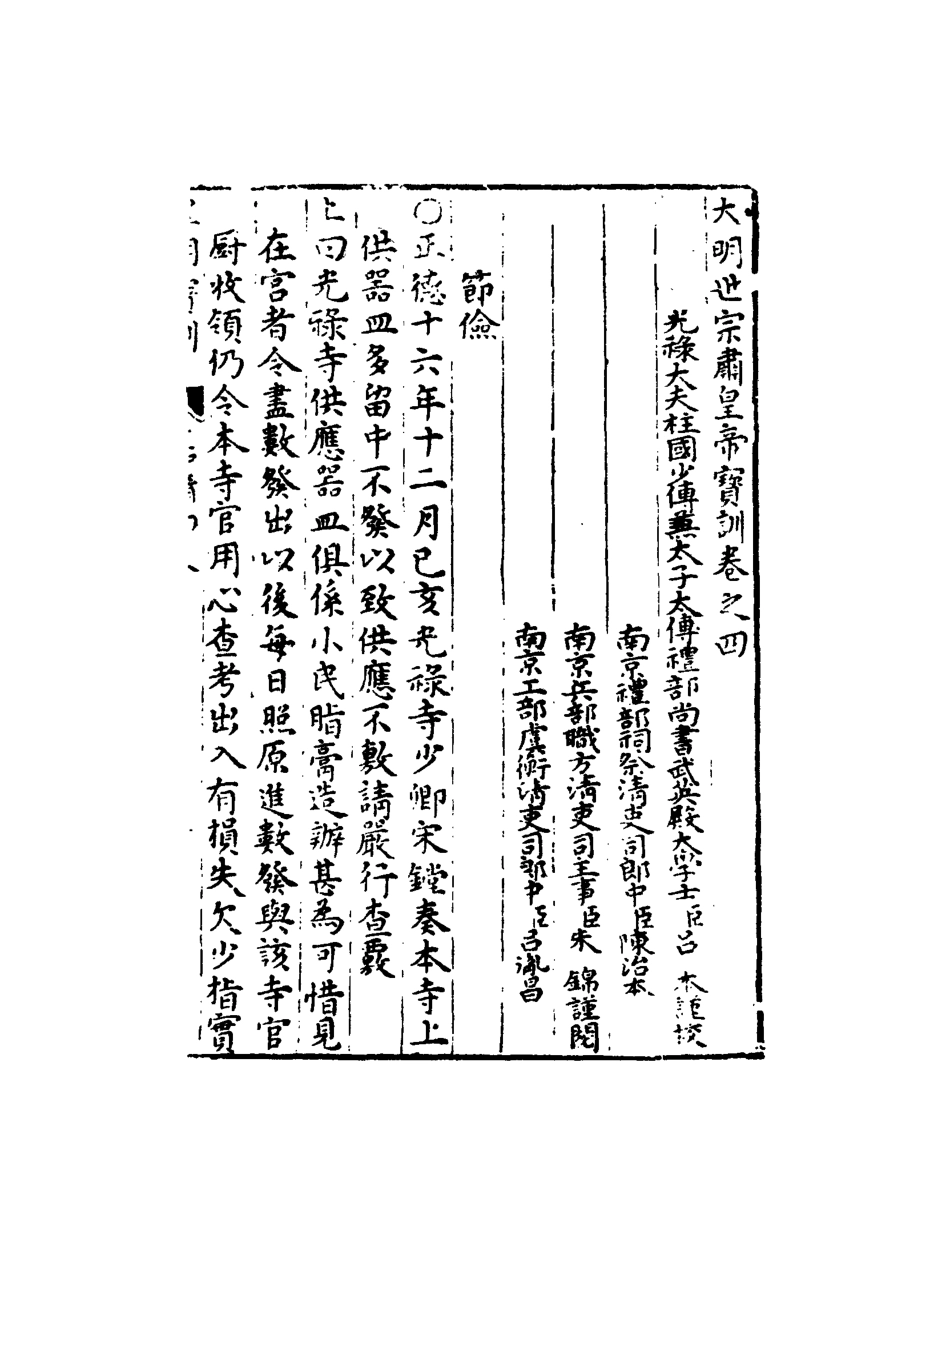 大明世宗肅皇帝寶訓卷之四
光祿大夫柱國少傅兼太子太傅禮部尚書武英殿大學士臣呂 本謹校
南京禮部祠祭清吏司郎中臣陳治本
南京兵部職方清吏司主事臣朱 錦謹閱
南京工部虞衡清吏司郎中臣呂胤昌
節儉
○正德十六年十二月己亥光祿寺少卿宋鏜奏本寺上
供器皿多留中不發以致供應不敷請嚴行查覈
上曰光祿寺供應器皿俱係小民脂膏造辦甚為可惜見
在宮者令盡數發出以後每日照原進數發與該寺官
厨收領仍令本寺官用心查考出入有損失欠少指實